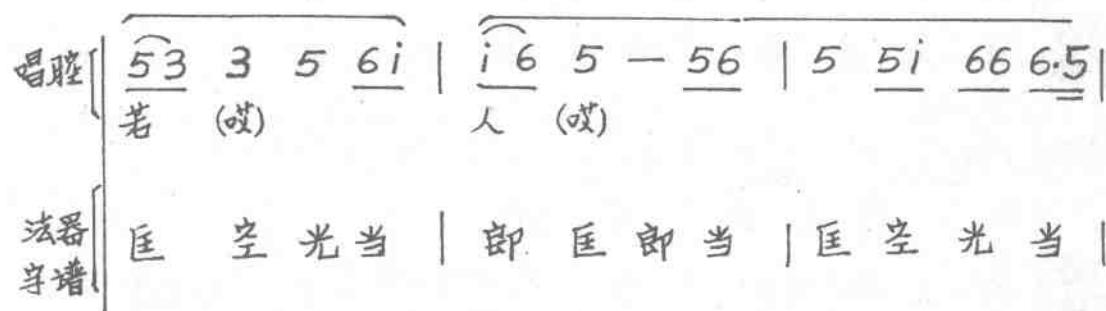 唱腔 53 3 5 6i | i6 5 — 56 | 5 5i 66 6·5 |
若 (哎) 人 (哎)
法器字谱 匡 空 光 当 | 郎 匡 郎 当 | 匡 空 光 当 |